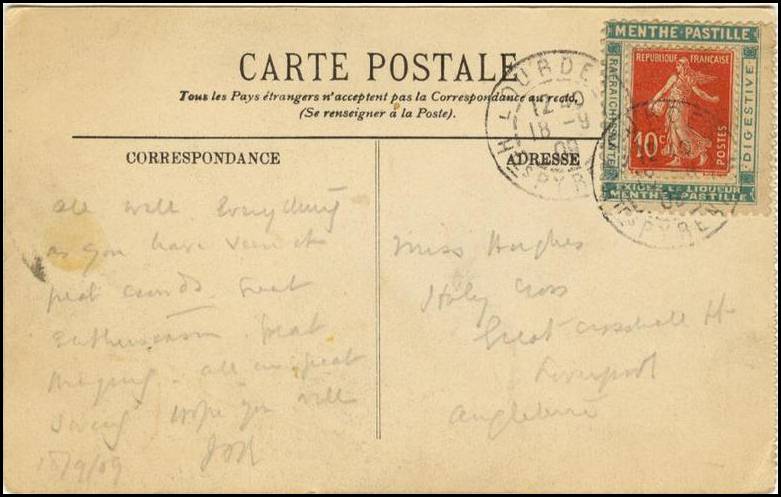 CARTE POSTALE
Tous les Pays étrangers n'acceptent pas la Correspondance au recto.
(Se renseigner à la Poste).
CORRESPONDANCE
ADRESSE
MENTHE-PASTILLE
REPUBLIQUE FRANÇAISE
DIGESTIVE
10c
POSTES
EXIGEZ LA LIQUEUR
MENTHE-PASTILLE
LOURDES
18 -9
09
all well Everything
as you have seen
great crowds. Great
Enthusiasm great
all in great
Hope you well
18/9/09
Miss Hughes
Holy Cross
Great Crosshall St
Liverpool
Angleterre